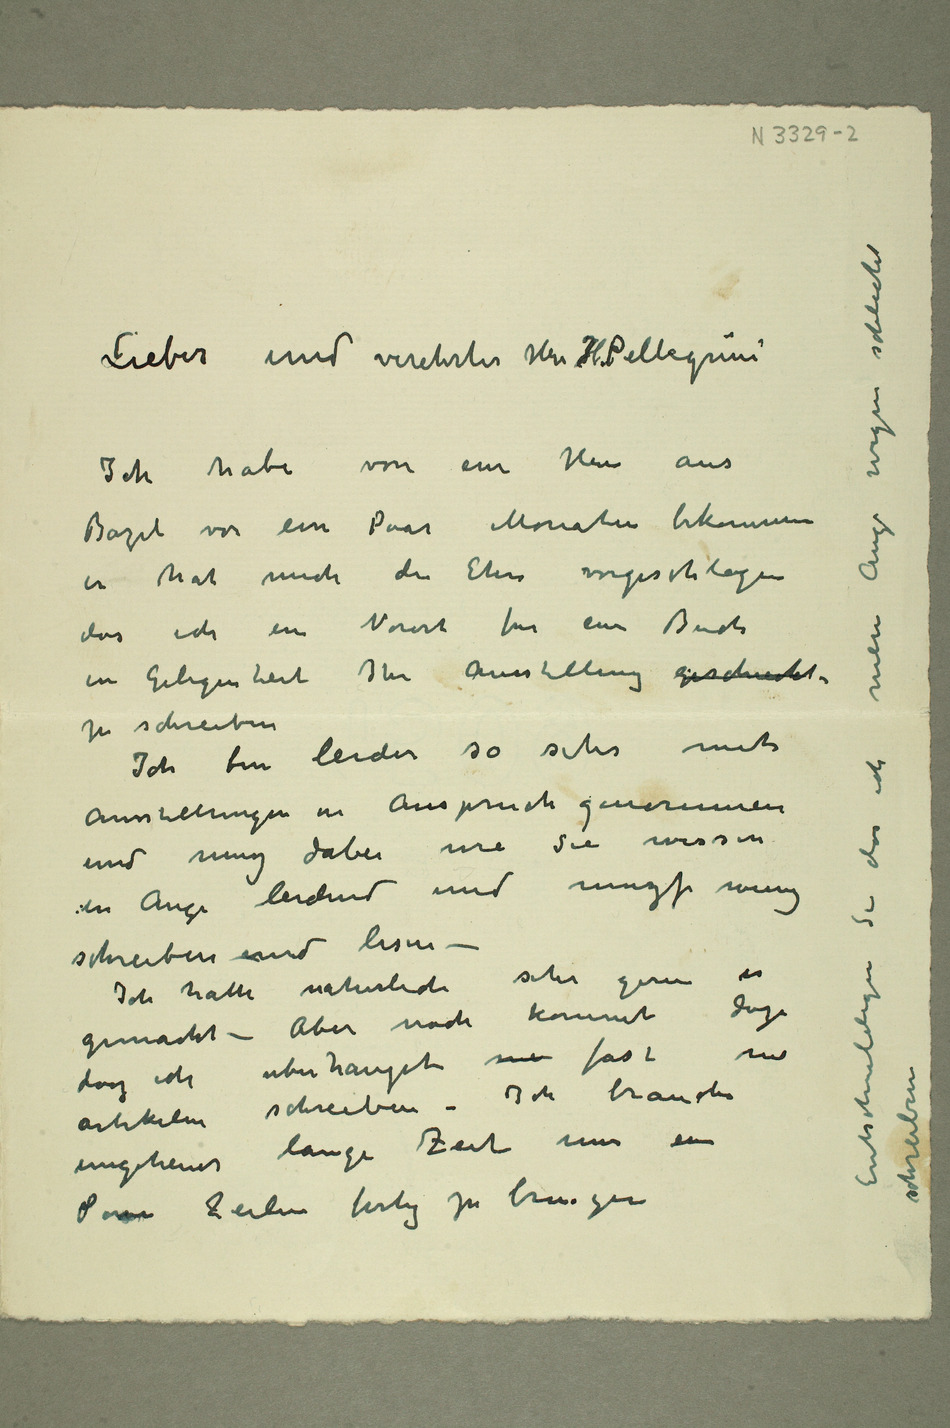 N 3329-2
Lieber und verehrter Herr H. Pellegrini
Ich habe von ein Herr aus
Bazel vor ein Paar Monaten bekommen
er hat mich die Ehre vorgeschlagen
das ich ein Vorort fur ein Buch
in Gelegenheit Ihre Ausstellung geschickt-
zu schreiben
Ich bin leider so sehr mit
Ausstellungen in Anspruch genommen
und dabei wie Sie wissen
in Auge leidend und wenig
schreiben und lesen —
Ich hatte naturlich sehr gern es
gemacht — Aber noch kommt dazu
daz ich uberhaupt fast nie
artikeln schreiben - Ich brauche
ungeheuer lange Zeit um ein
Paar Zeilen fertig zu bringen
Entschuldigen Sie das ich mein Auge wegen schlecht
schreiben